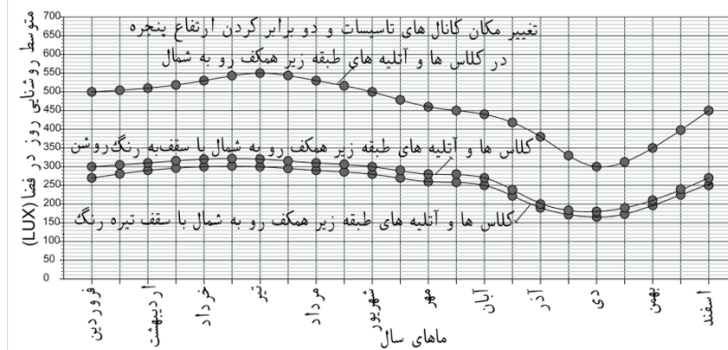 متوسط روشنایی روز در فضا (LUX)
700
650
600
550
500
450
400
350
300
250
200
150
100
50
0
تغییر مکان کانال های تاسیسات و دو برابر کردن ارتفاع پنجره
در کلاس ها و آتلیه های طبقه زیر همکف رو به شمال
کلاس ها و آتلیه های طبقه زیر همکف رو به شمال با سقف به رنگ روشن
کلاس ها و آتلیه های طبقه زیر همکف رو به شمال با سقف تیره رنگ
فروردین
اردیبهشت
خرداد
تیر
مرداد
شهریور
مهر
آبان
آذر
دی
بهمن
اسفند
ماهای سال